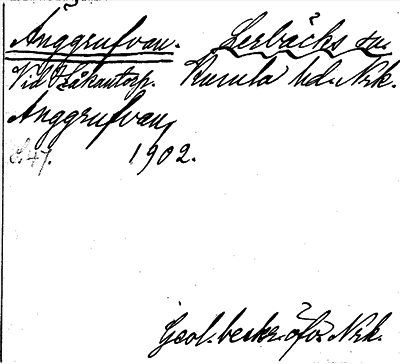 Änggrufvan. Lerbäcks sn.
Vid Råkantorp. Kumla hd. Nrk.
Änggrufvan,
S. 47. 1902.
Geol. beskr. öfv. Nrk.